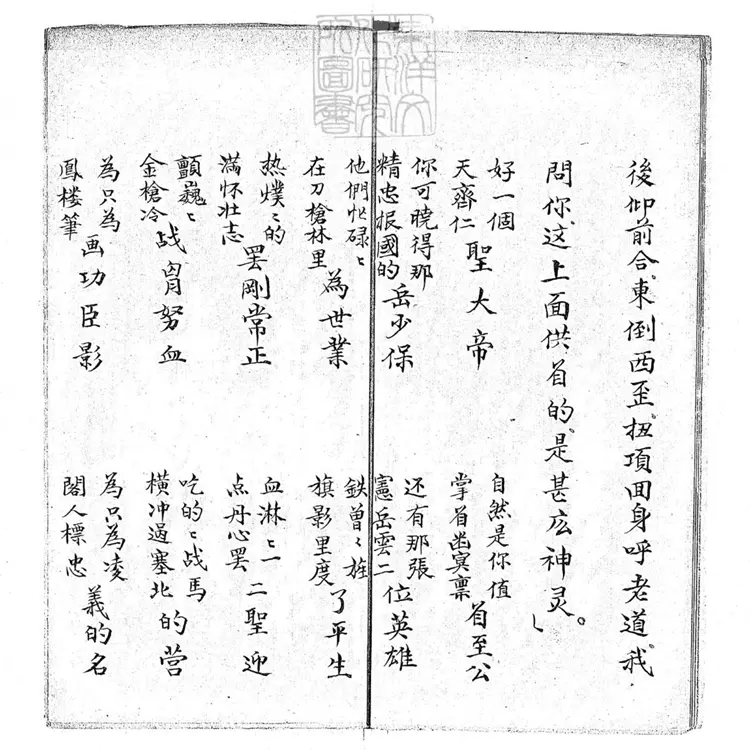 東洋文化研究所圖書
後仰前合。東倒西歪。扭項回身呼老道。我
問你。这上面供着的。是甚広神灵。
好一個
天齊仁
聖大帝
自然是你值
掌着幽冥禀
着至公
你可曉得那
精忠报國的
岳少保
还有那張
憲岳雲二
位英雄
他們忙碌〻
在刀槍林里
為世業
鉄曾〻旌
旗影里度
了平生
热燻〻的
满怀壮志
罢剛常正
血淋〻一
点丹心罢
二聖迎
顫巍〻
金槍冷
战冑努血
吃的〻战馬
横冲過塞北
的营
為只為
鳳楼筆
画功臣影
為只為凌
閣人標忠
義的名